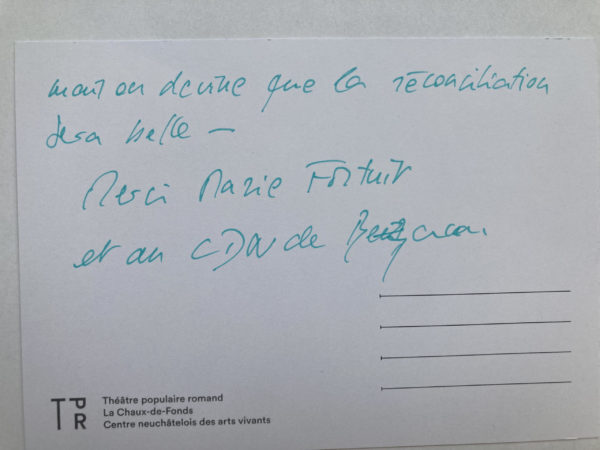 mais on devine que la réconciliation
sera belle –
Merci Marie Fortuit
et au CDN de
TPR
Théâtre populaire romand
La Chaux-de-Fonds
Centre neuchâtelois des arts vivants